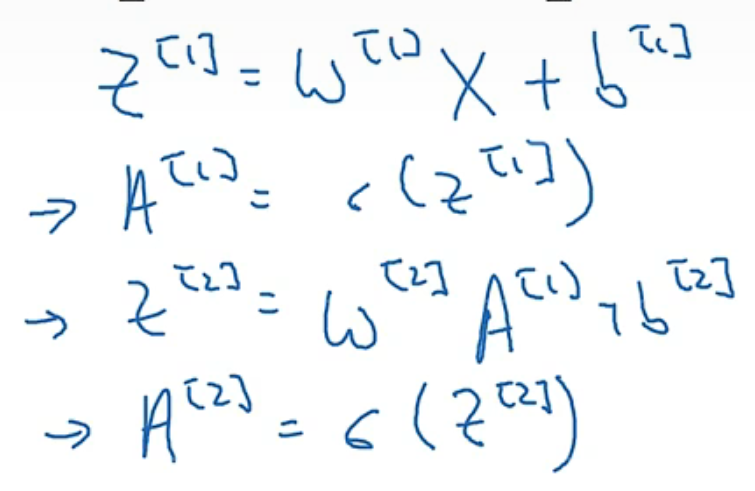 Z^[1] = W^[1] X + b^[1]
→ A^[1] = σ(Z^[1])
→ Z^[2] = W^[2] A^[1] + b^[2]
→ A^[2] = σ(Z^[2])